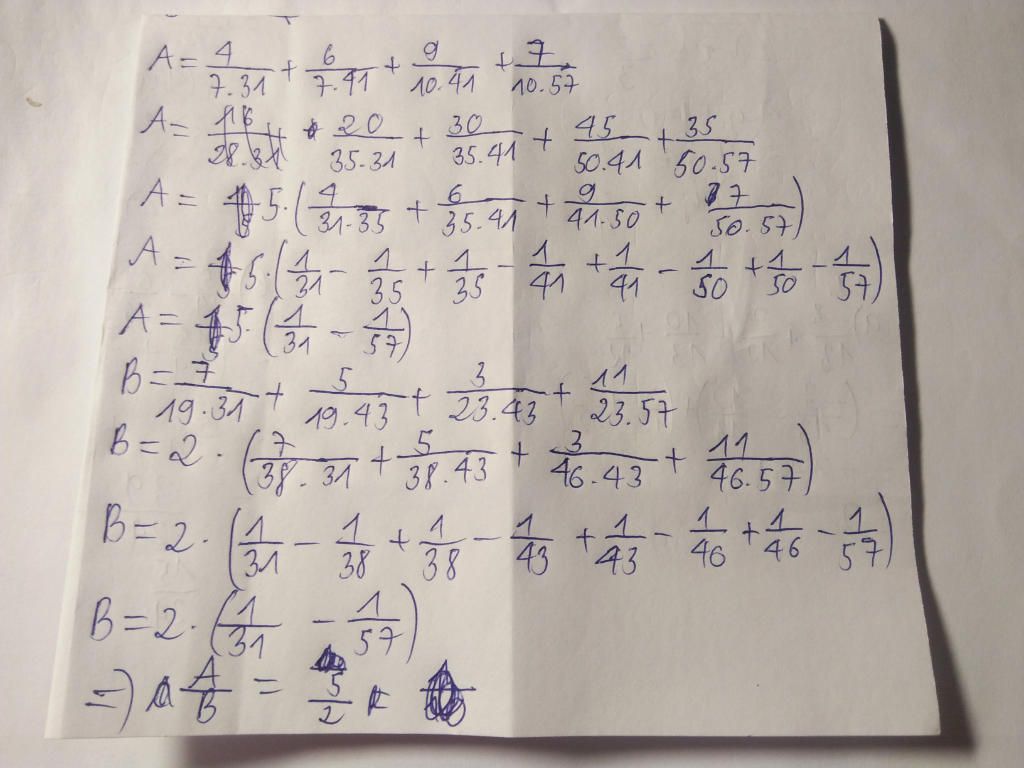 A = 4/7.31 + 6/7.41 + 9/10.41 + 7/10.57
A = 20/35.31 + 30/35.41 + 45/50.41 + 35/50.57
A = 5.(4/31.35 + 6/35.41 + 9/41.50 + 7/50.57)
A = 5.(1/31 - 1/35 + 1/35 - 1/41 + 1/41 - 1/50 + 1/50 - 1/57)
A = 5(1/31 - 1/57)
B = 7/19.31 + 5/19.43 + 3/23.43 + 11/23.57
B = 2.(7/38.31 + 5/38.43 + 3/46.43 + 11/46.57)
B = 2.(1/31 - 1/38 + 1/38 - 1/43 + 1/43 - 1/46 + 1/46 - 1/57)
B = 2.(1/31 - 1/57)
=) A/B = 5/2